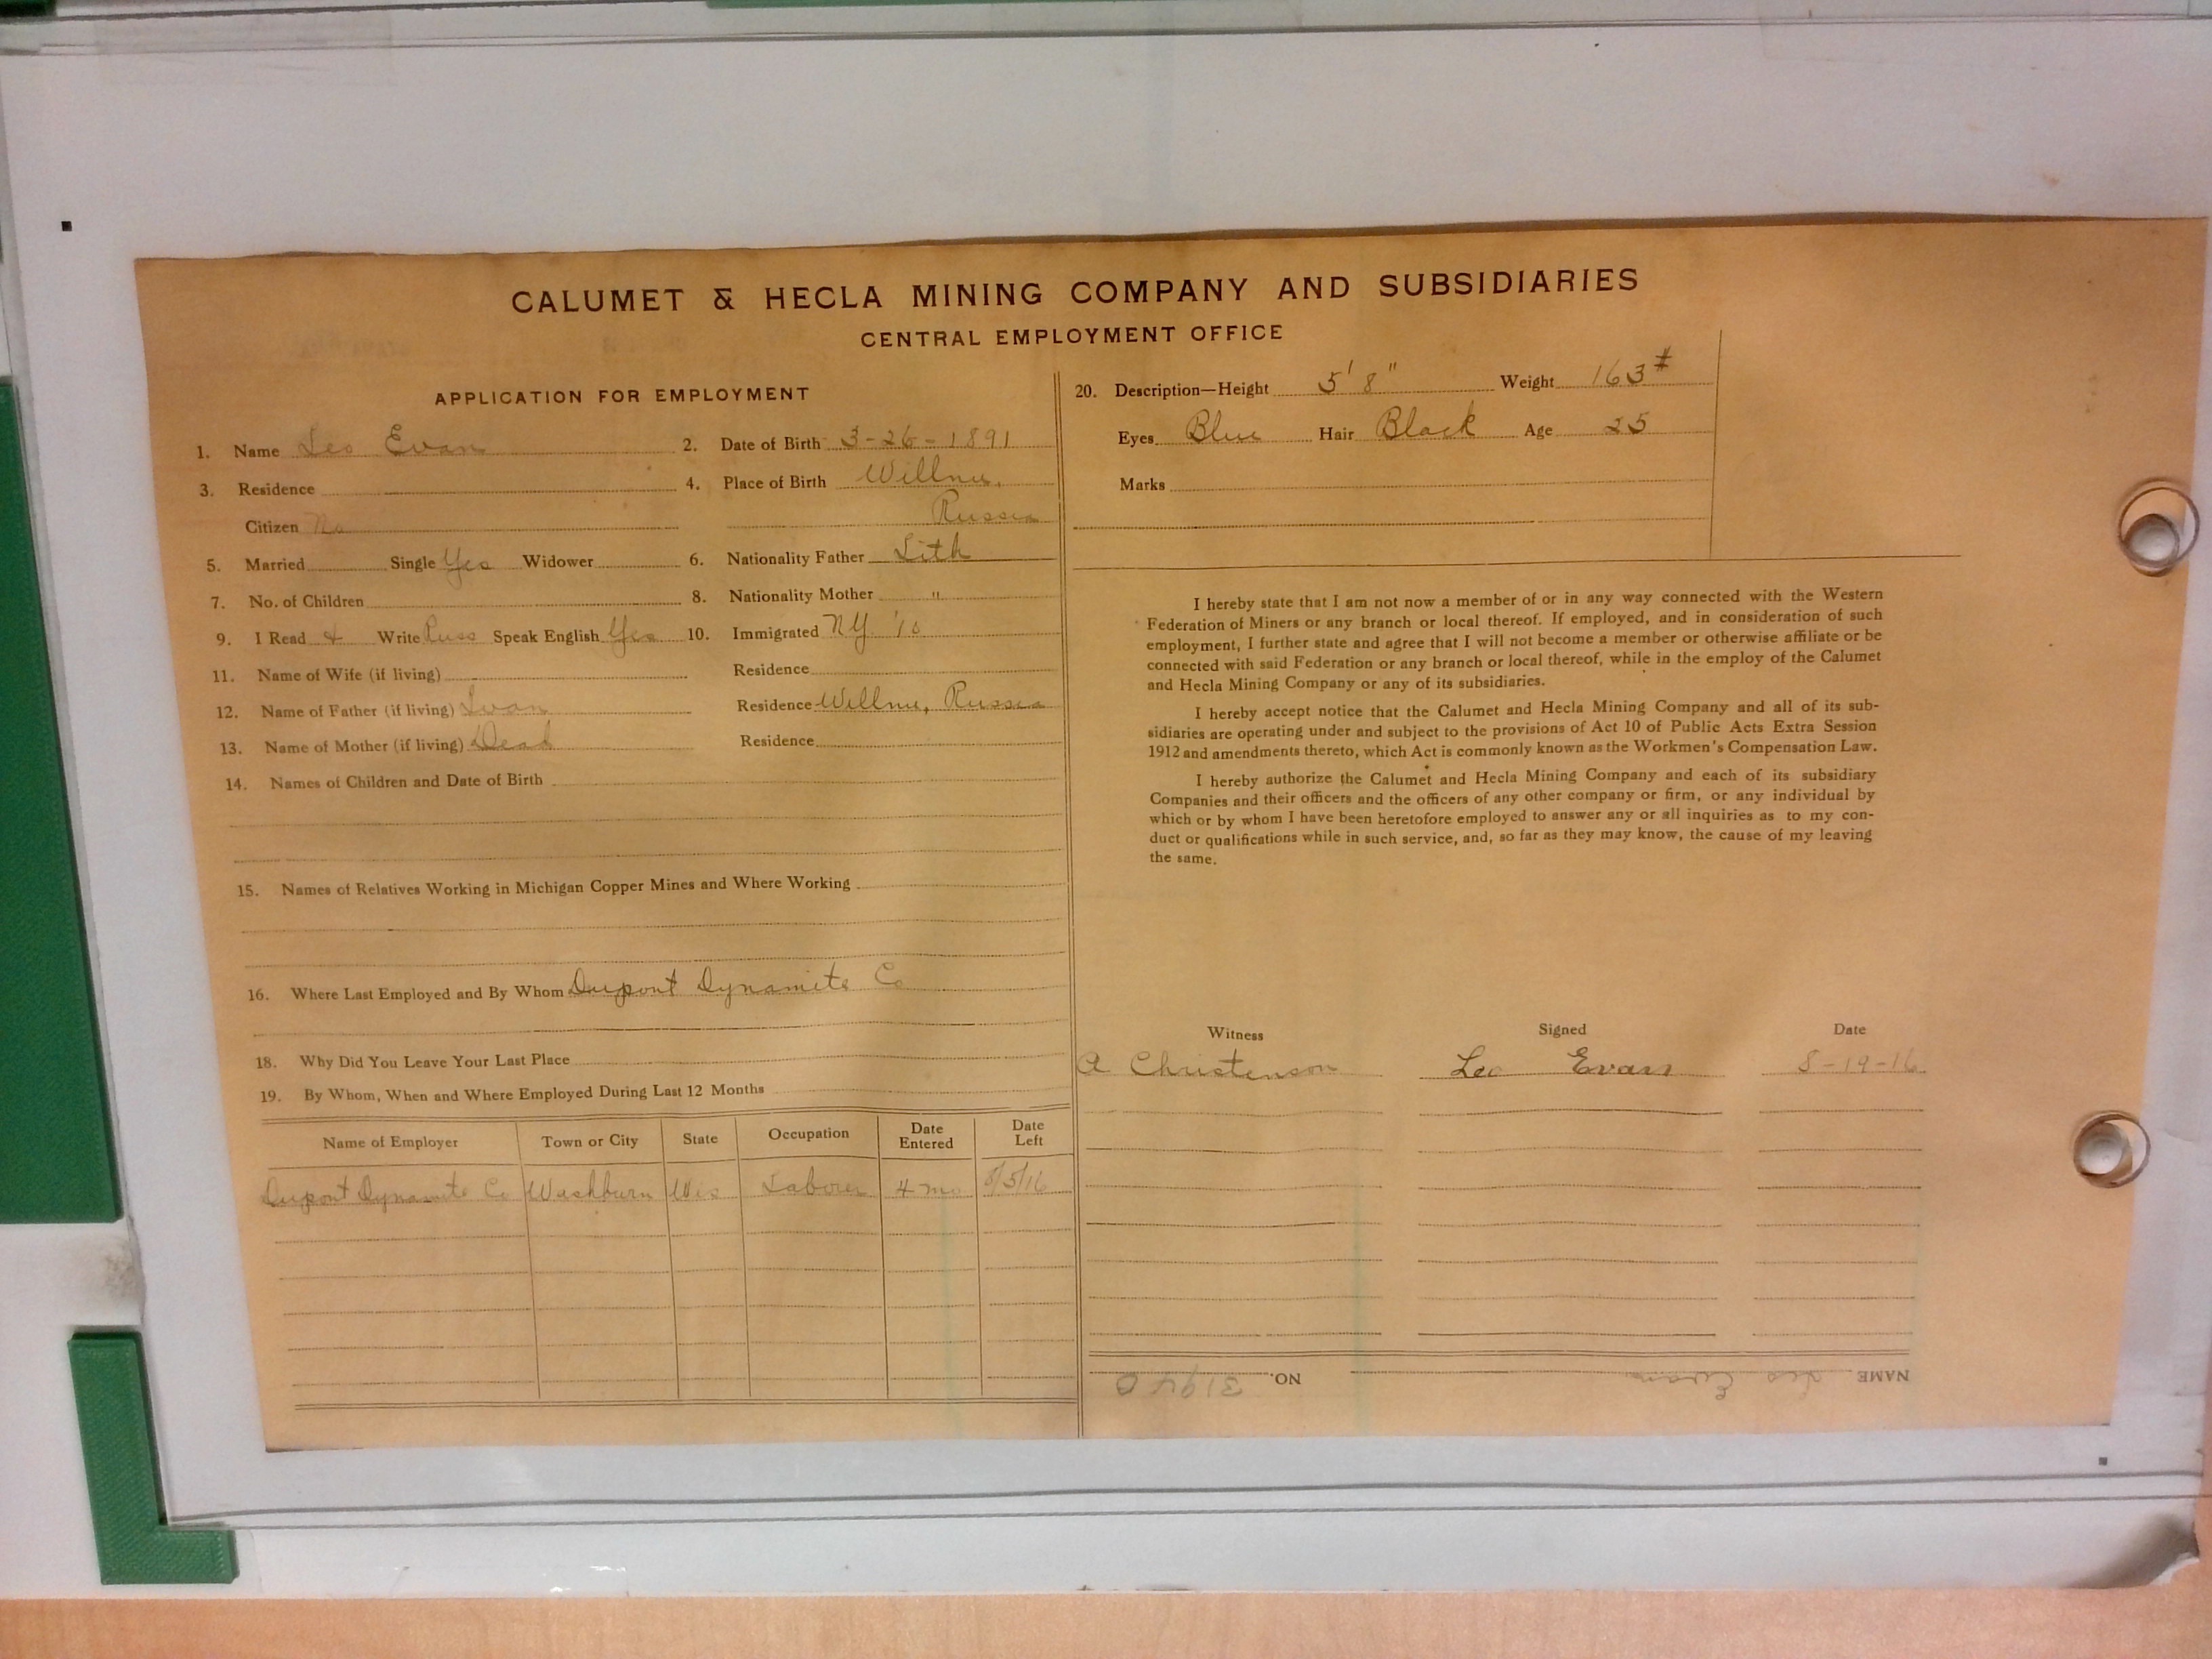 CALUMET & HECLA MINING COMPANY AND SUBSIDIARIES
CENTRAL EMPLOYMENT OFFICE
APPLICATION FOR EMPLOYMENT
1. Name Leo Evan 2. Date of Birth 3-26-1891
3. Residence 4. Place of Birth Willnu,
Citizen No Russia
5. Married Single Yes Widower 6. Nationality Father Lith
7. No. of Children 8. Nationality Mother "
9. I Read & Write Russ Speak English Yes 10. Immigrated NY '10
11. Name of Wife (if living) Residence
12. Name of Father (if living) Ivan Residence Willnu, Russia
13. Name of Mother (if living) Dead Residence
14. Names of Children and Date of Birth
15. Names of Relatives Working in Michigan Copper Mines and Where Working
16. Where Last Employed and By Whom Dupont Dynamite Co
18. Why Did You Leave Your Last Place
19. By Whom, When and Where Employed During Last 12 Months
Name of Employer Town or City State Occupation Date Entered Date Left
Dupont Dynamite Co Washburn Wis Laborer 4 mo 8/5/16
20. Description—Height 5' 8" Weight 163#
Eyes Blue Hair Black Age 25
Marks
I hereby state that I am not now a member of or in any way connected with the Western
Federation of Miners or any branch or local thereof. If employed, and in consideration of such
employment, I further state and agree that I will not become a member or otherwise affiliate or be
connected with said Federation or any branch or local thereof, while in the employ of the Calumet
and Hecla Mining Company or any of its subsidiaries.
I hereby accept notice that the Calumet and Hecla Mining Company and all of its sub-
sidiaries are operating under and subject to the provisions of Act 10 of Public Acts Extra Session
1912 and amendments thereto, which Act is commonly known as the Workmen's Compensation Law.
I hereby authorize the Calumet and Hecla Mining Company and each of its subsidiary
Companies and their officers and the officers of any other company or firm, or any individual by
which or by whom I have been heretofore employed to answer any or all inquiries as to my con-
duct or qualifications while in such service, and, so far as they may know, the cause of my leaving
the same.
Witness Signed Date
A Christenson Leo Evan 8-19-16
NAME Leo Evan NO.